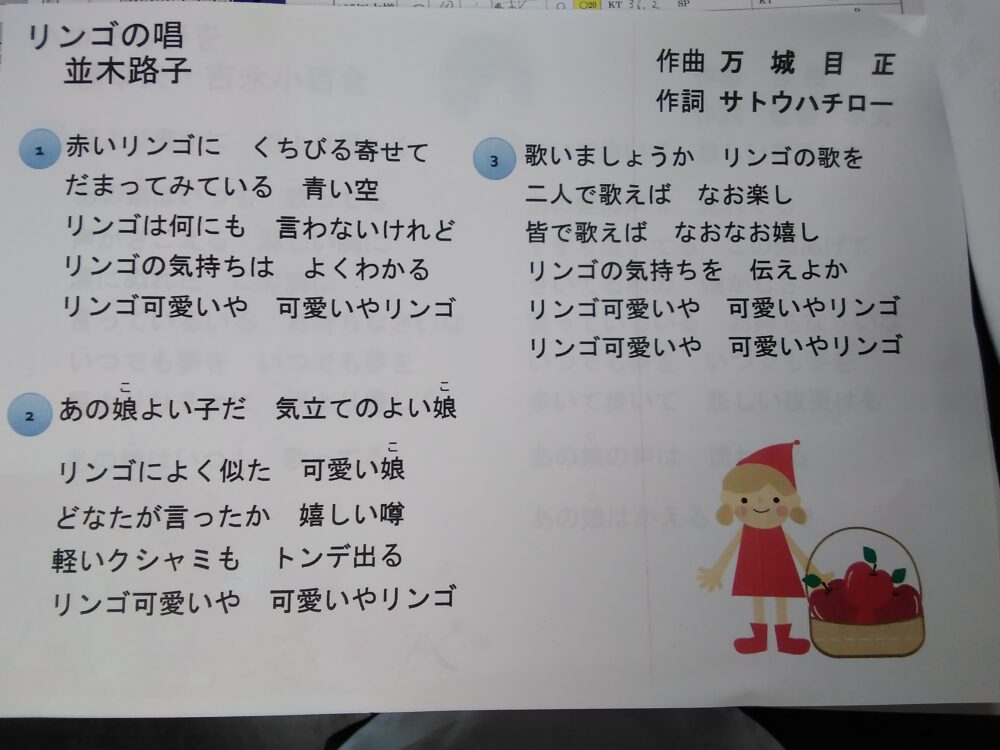 リンゴの唱
並木路子
作曲 万城目正
作詞 サトウハチロー
1 赤いリンゴに くちびる寄せて
だまってみている 青い空
リンゴは何にも 言わないけれど
リンゴの気持ちは よくわかる
リンゴ可愛いや 可愛いやリンゴ
こ こ
2 あの娘よい子だ 気立てのよい娘
こ
リンゴによく似た 可愛い娘
どなたが言ったか 嬉しい噂
軽いクシャミも トンデ出る
リンゴ可愛いや 可愛いやリンゴ
3 歌いましょうか リンゴの歌を
二人で歌えば なお楽し
皆で歌えば なおなお嬉し
リンゴの気持ちを 伝えよか
リンゴ可愛いや 可愛いやリンゴ
リンゴ可愛いや 可愛いやリンゴ